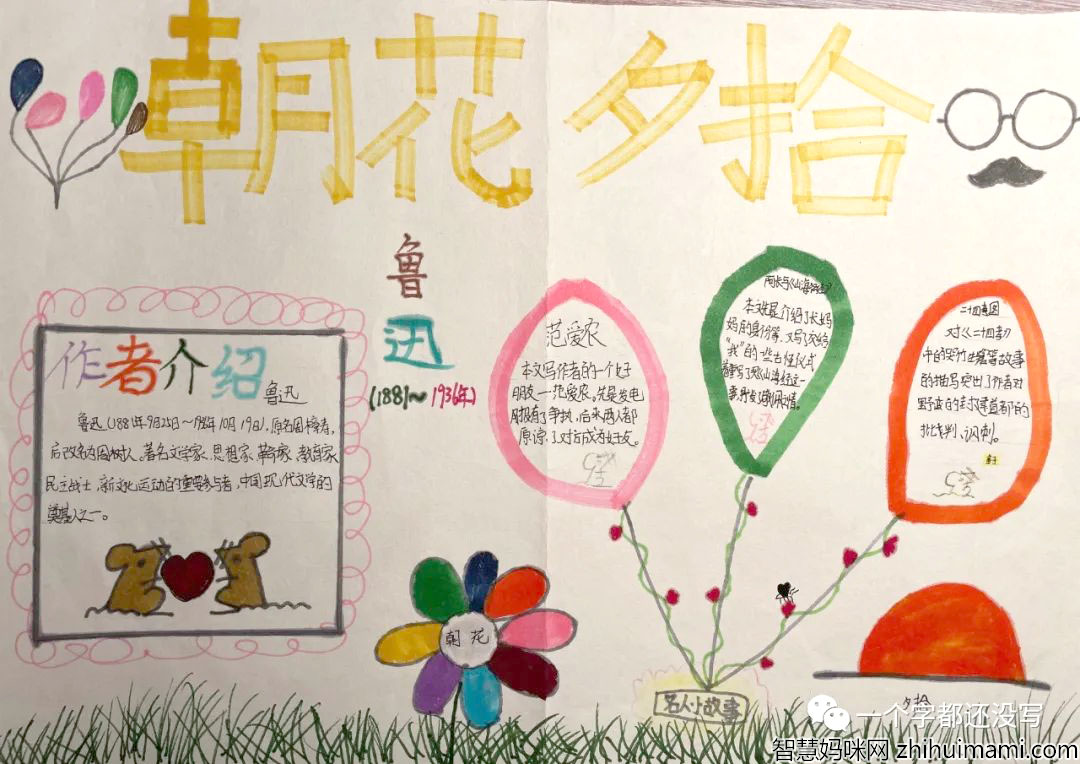 朝花夕拾
鲁
迅
(1881～1936年)
作者介绍
鲁迅
鲁迅(1881年9月25日～1936年10月19日),原名周樟寿,
后改名为周树人。著名文学家、思想家、革命家、教育家、
民主战士,新文化运动的重要参与者,中国现代文学的
奠基人之一。
范爱农
本文写作者的一个好
朋友—范爱农。先是发电
报有争执,后来两人都
原谅了对方成为好友。
阿长与《山海经》
本文是介绍了长妈
妈的身份等,又写了她给
“我”的一些古怪仪式
着重写了买《山海经》这一
二十四孝图
对《二十四孝》
中的哭竹生笋等故事
的描写突出了作者对
的封建道都的
批判、讽刺。
朝花
名人小故事
夕拾
一个字都还没写
智慧妈咪网 zhihuimami.com